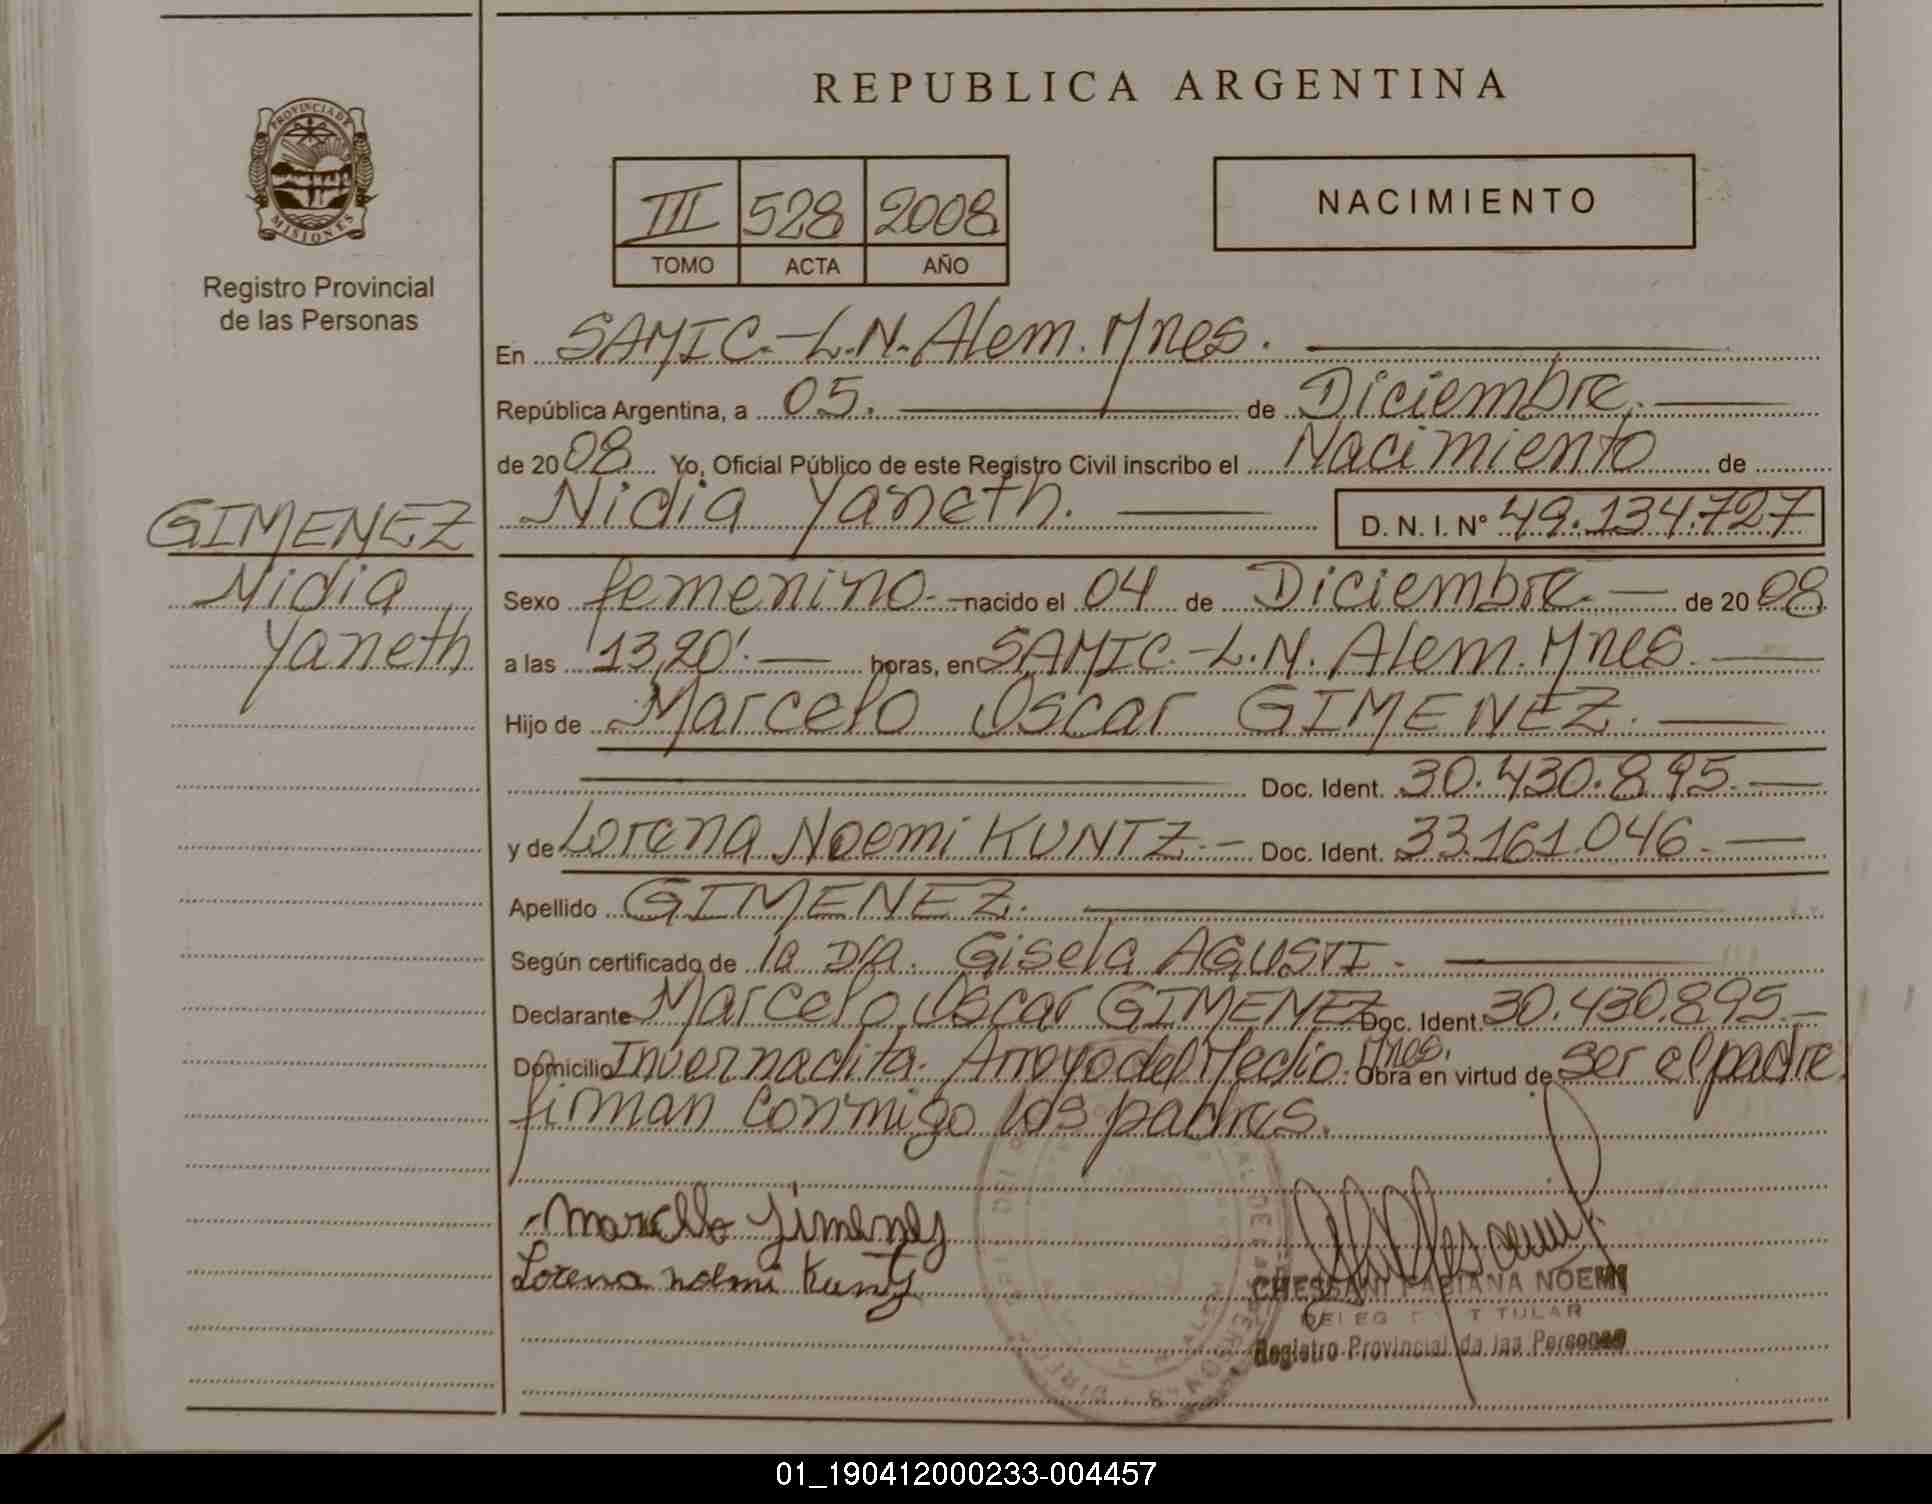 REPUBLICA ARGENTINA
PROVINCIA DE
MISIONES
Registro Provincial
de las Personas
III 528 2008
TOMO ACTA AÑO
NACIMIENTO
En SAMIC.-L.N.Alem.Mnes.
República Argentina, a 05. de Diciembre.
de 2008 Yo, Oficial Público de este Registro Civil inscribo el Nacimiento de
Nidia Yaneth. D. N. I. N° 49.134.727
GIMENEZ
Nidia
Yaneth
Sexo femenino.- nacido el 04 de Diciembre. de 2008
a las 13,20'. horas, en SAMIC.-L.N. Alem. Mnes.
Hijo de Marcelo Oscar GIMENEZ.
Doc. Ident. 30.430.895.
y de Lorena Noemi KUNTZ.- Doc. Ident. 33.161.046.
Apellido GIMENEZ.
Según certificado de la Dra. Gisela AGUSTI.
Declarante Marcelo Oscar GIMENEZ Doc. Ident. 30.430.895.
Domicilio Invernadita. Arroyo del Medio. Mnes. Obra en virtud de ser el padre.
firman conmigo los padres.
Marcelo Jimenez
Lorena noemi Kuntz
CHESSANI FABIANA NOEMI
TITULAR
Registro Provincial de las Personas
01_190412000233-004457